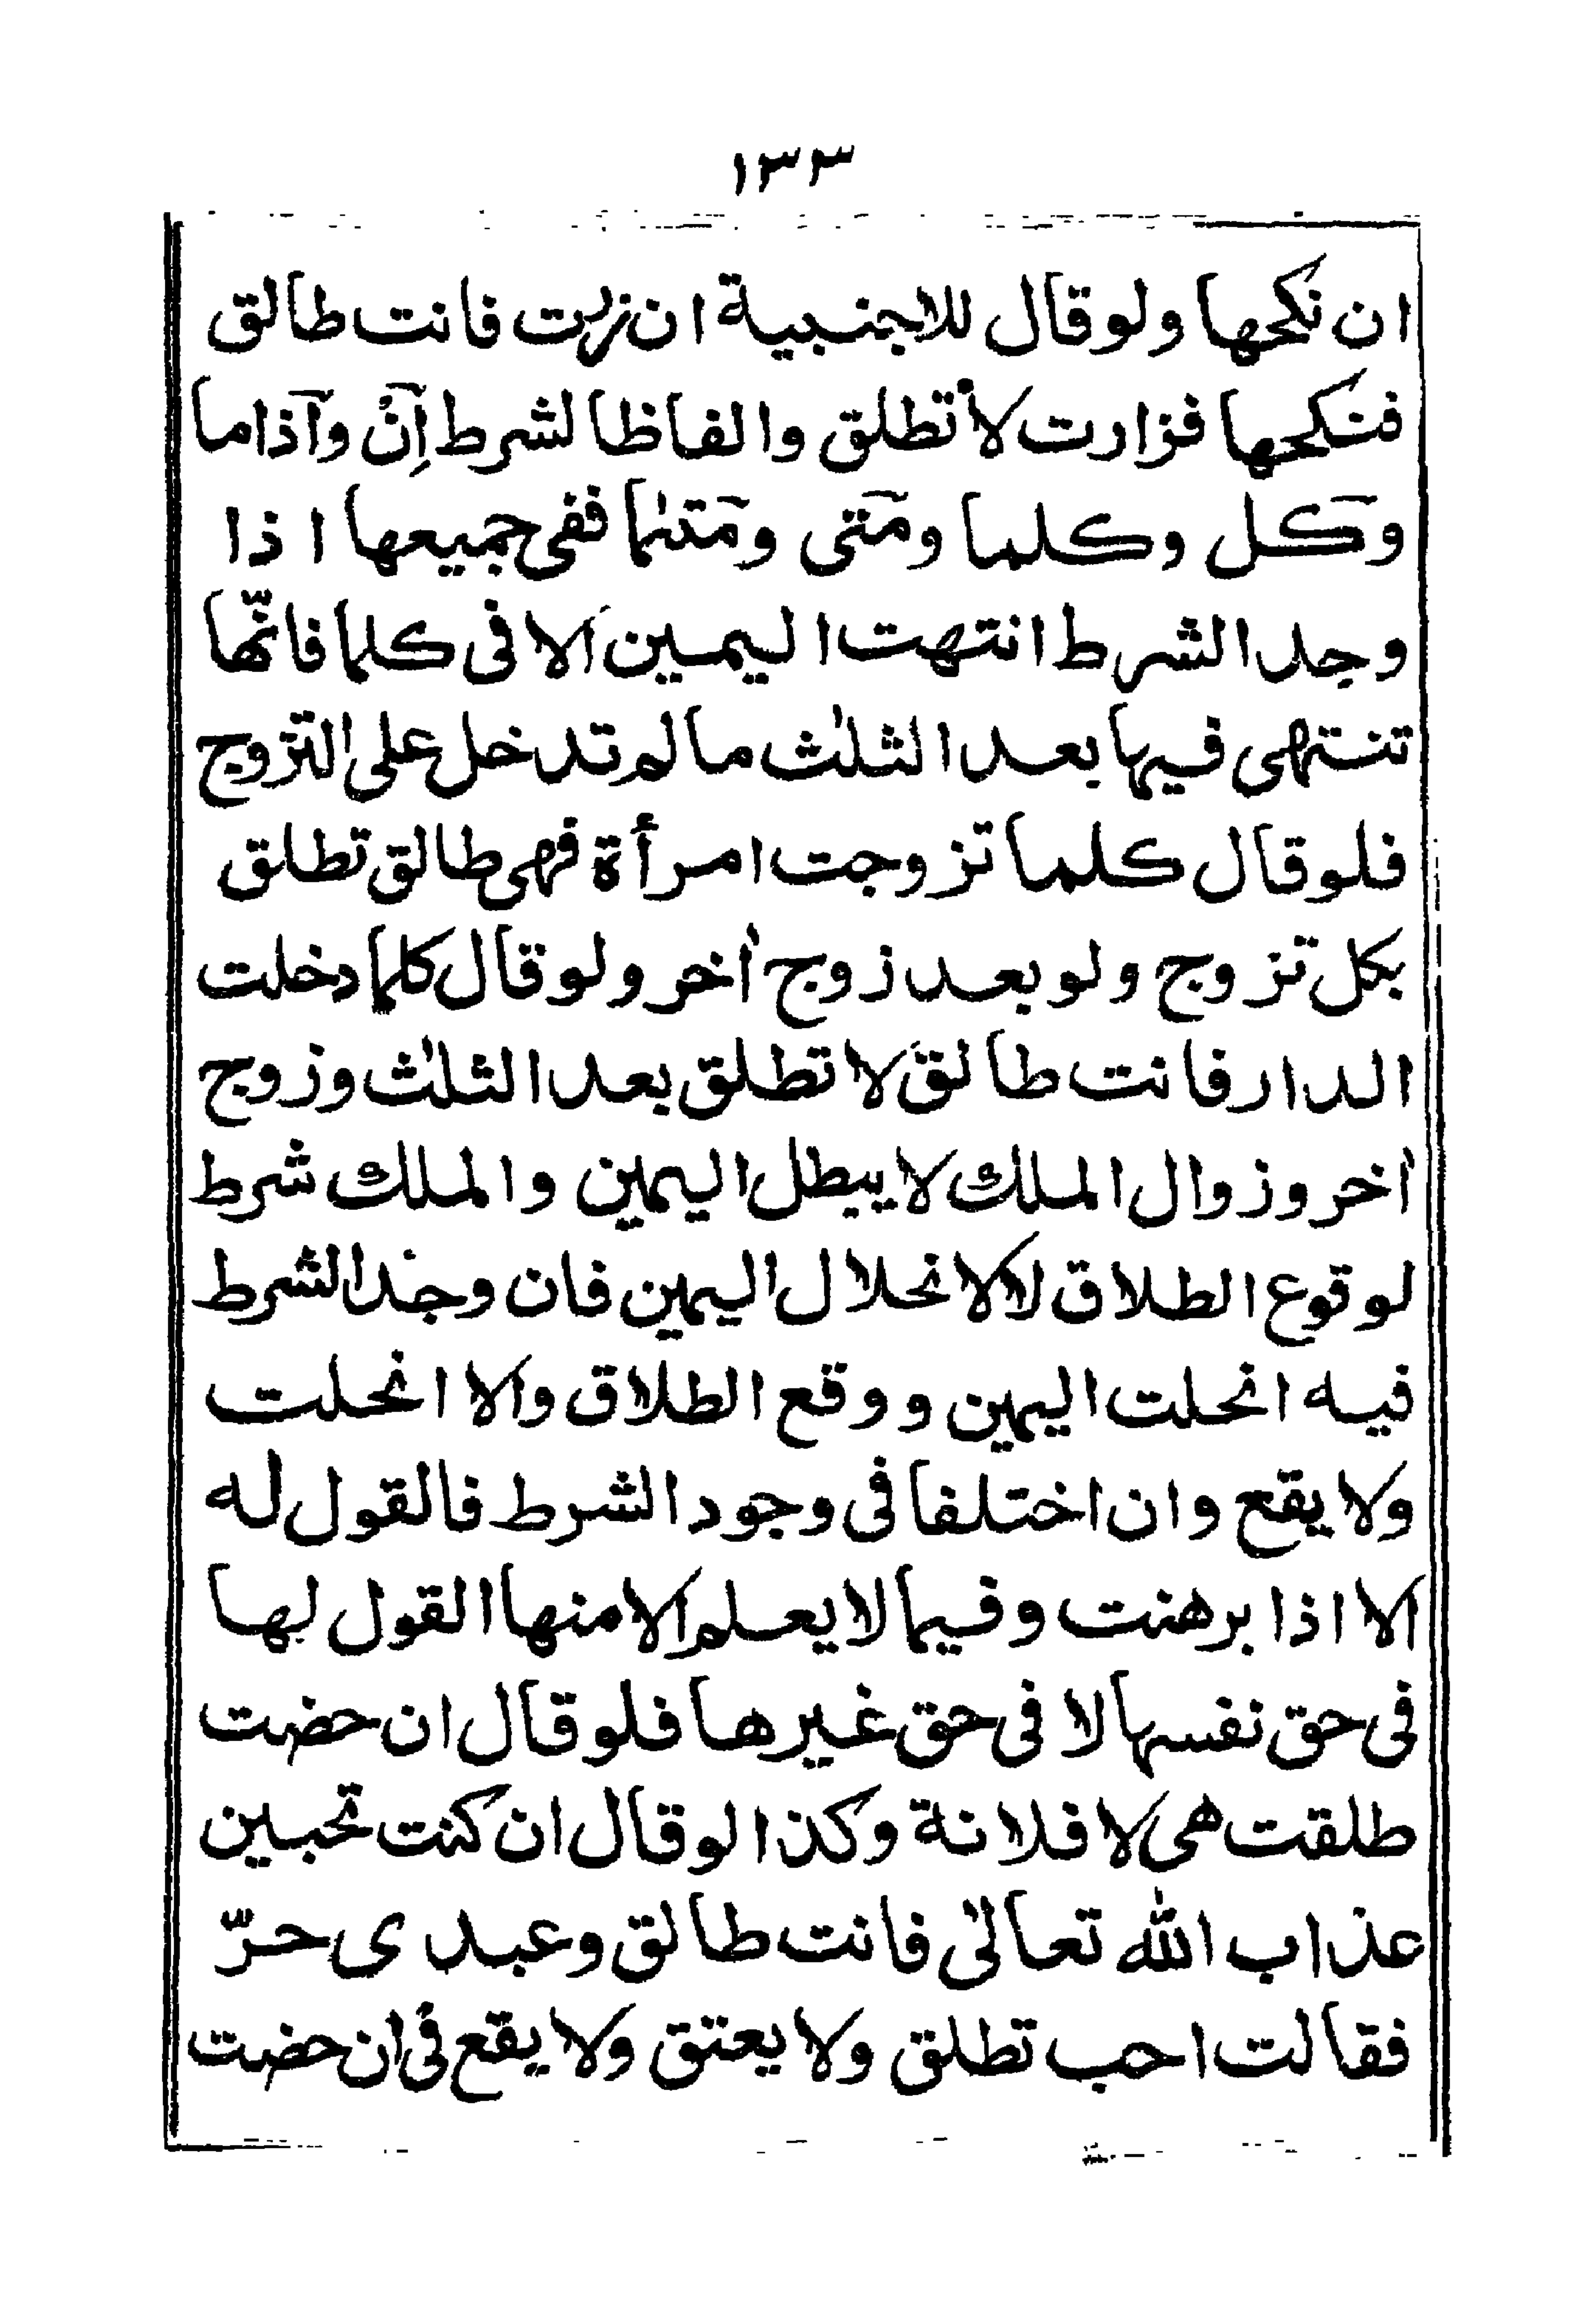 ١٣٣
ان نكحها ولو قال للاجنبية ان زرت فانت طالق
فنكحها فزارت لا تطلق والفاظ الشرط اِنْ واذا ما
وكل وكلما ومتى ومتىما ففى جميعها اذا
وجد الشرط انتهت اليمين الا فى كلما فانّها
تنتهى فيها بعد الثلٰث ما لم تدخل على التزوج
فلو قال كلما تزوجت امرأة فهى طالق تطلق
بكل تزوج ولو بعد زوج اٰخر ولو قال كلما دخلت
الدار فانت طالق لا تطلق بعد الثلٰث وزوج
اٰخر وزوال الملك لا يبطل اليمين والملك شرط
لوقوع الطلاق لا لانحلال اليمين فان وجد الشرط
فيه انحلت اليمين ووقع الطلاق والا انحلت
ولا يقع وان اختلفا فى وجود الشرط فالقول له
الا اذا برهنت وفيما لا يعلم الا منها القول لها
فى حق نفسها لا فى حق غيرها فلو قال ان حضت
طلقت هى لا فلانة وكذا لو قال ان كنت تحبين
عذاب الله تعالىٰ فانت طالق وعبدى حرّ
فقالت احب تطلق ولا يعتق ولا يقع فى ان حضت